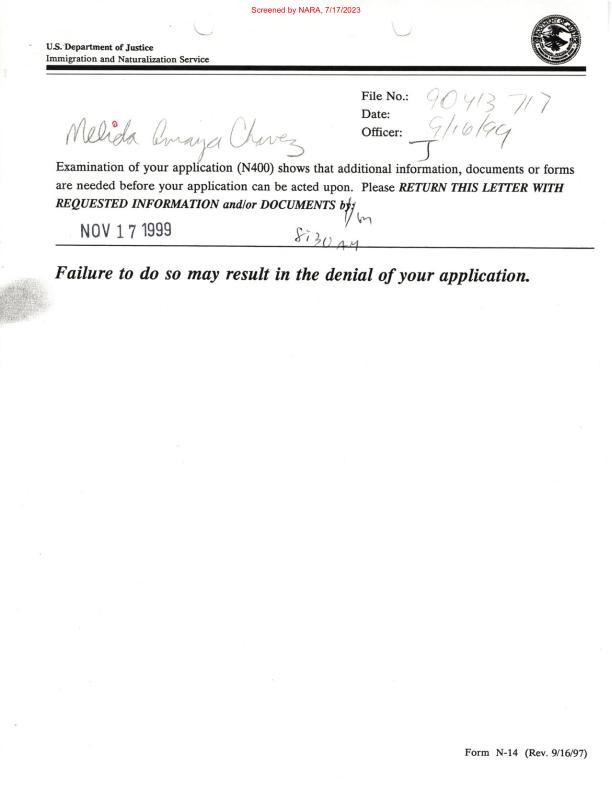 Screened by NARA, 7/17/2023
U.S. Department of Justice
Immigration and Naturalization Service
File No.: 90 413 717
Date: 9/16/99
Officer: J
Melida Amaya Chavez
Examination of your application (N400) shows that additional information, documents or forms
are needed before your application can be acted upon. Please RETURN THIS LETTER WITH
REQUESTED INFORMATION and/or DOCUMENTS by:
NOV 17 1999
8:30 AM
Failure to do so may result in the denial of your application.
Form N-14 (Rev. 9/16/97)